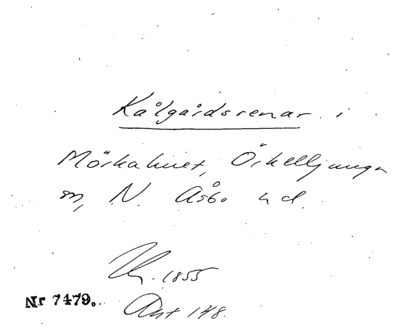 Kålgårdsrenar i
Mörkahuet, Örkelljunga
sn, N. Åsbo hd.
1855
Nr 7479.
Ant 148.